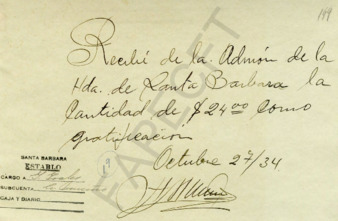 119
Recibí de la Admón de la
Hda. de Santa Barbara la
Cantidad de $24 00 como
gratificacion
Octubre 27/34
SANTA BARBARA
ESTABLO
CARGO A
SUBCUENTA
CAJA Y DIARIO